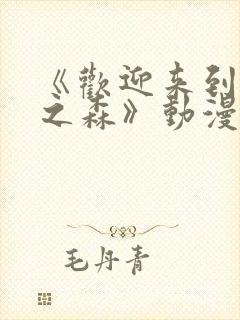 《歡迎来到
之森》動漫
毛丹青